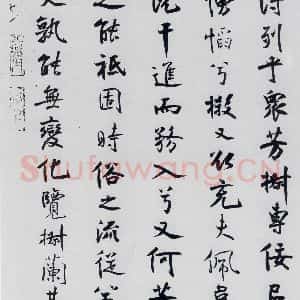 得列乎衆芳椒專佞
慆兮樧又欲充夫佩幃
干進而務入兮又何芳
之能祗固時俗之流從
又孰能無變化覽椒蘭其
Shufawang.CN